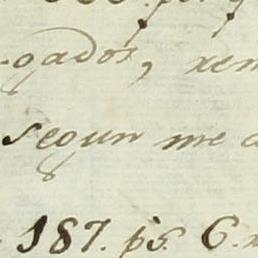 gados, rem
segun me a
187. ps. 6.